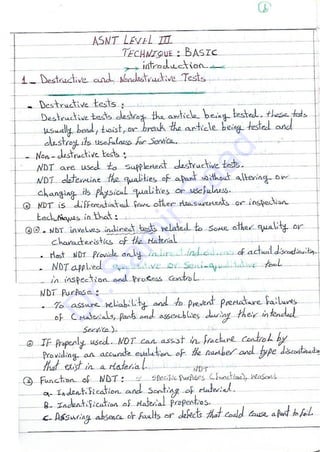 ASNT LEVEL III
TECHNIQUE : BASIC
introduction
1 - Destructive and Nondestructive Tests
- Destructive tests :
Destructive tests destroy the article being tested. these tests
usually bend, twist, or break the article being tested and
destroy its usefulness for Service.
- Non-destructive tests :
NDT are used to supplement destructive tests.
NDT determine the qualities of a part without altering or
changing its physical qualities or usefulness.
NDT is differentiated from other Measurements or inspection
techniques in that :
NDT involves indirect tests related to some other quality or
characteristics of the Material
- Most NDT Provide only indirect indications of actual discontinuities.
- NDT applied qualitative or Semi-quantitative tool
in inspection and Process Control
NDT Purpose :
- To assure reliability and to prevent premature failures
of (Materials, parts and assemblies during their intended
Service).
IF Properly used. NDT can assist in fracture Control by
Providing an accurate evaluation of the number and type discontinuities
that exist in a Material.
Function of NDT : NDT Specific Purposes (functions), reasons
a- Indentification and Sorting of Material.
B- Indentification of Material Properties.
C- Assuring absence of Faults or defects that could Cause a part to fail